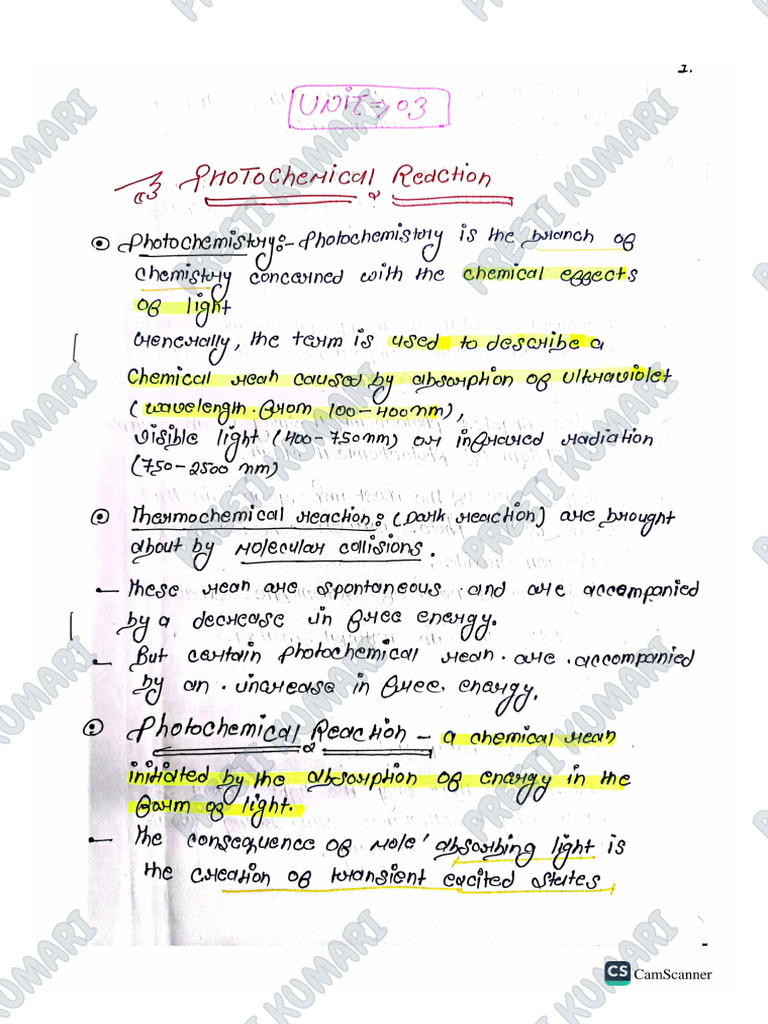 1.
UNIT ⇒ 03
Photochemical Reaction
Photochemistry:- Photochemistory is the branch of
chemistry concerned with the chemical effects
of light
Generally, the term is used to describe a
chemical rean caused by absorption of ultraviolet
(wavelength from 100-400nm),
visible light (400-750nm) or infrared radiation
(750-2500 nm)
Thermochemical reaction: (Dark reaction) are brought
about by molecular collisions.
- These rean are spontaneous and are accompanied
by a decrease in free energy.
- But certain photochemical rean. are. accompanied
by an. increase in free. energy.
Photochemical Reaction - a chemical rean
initiated by the absorption of energy in the
form of light.
- The consequence of mole' absorbing light is
the creation of transient excited states
PRESTI KUMARI
CS CamScanner